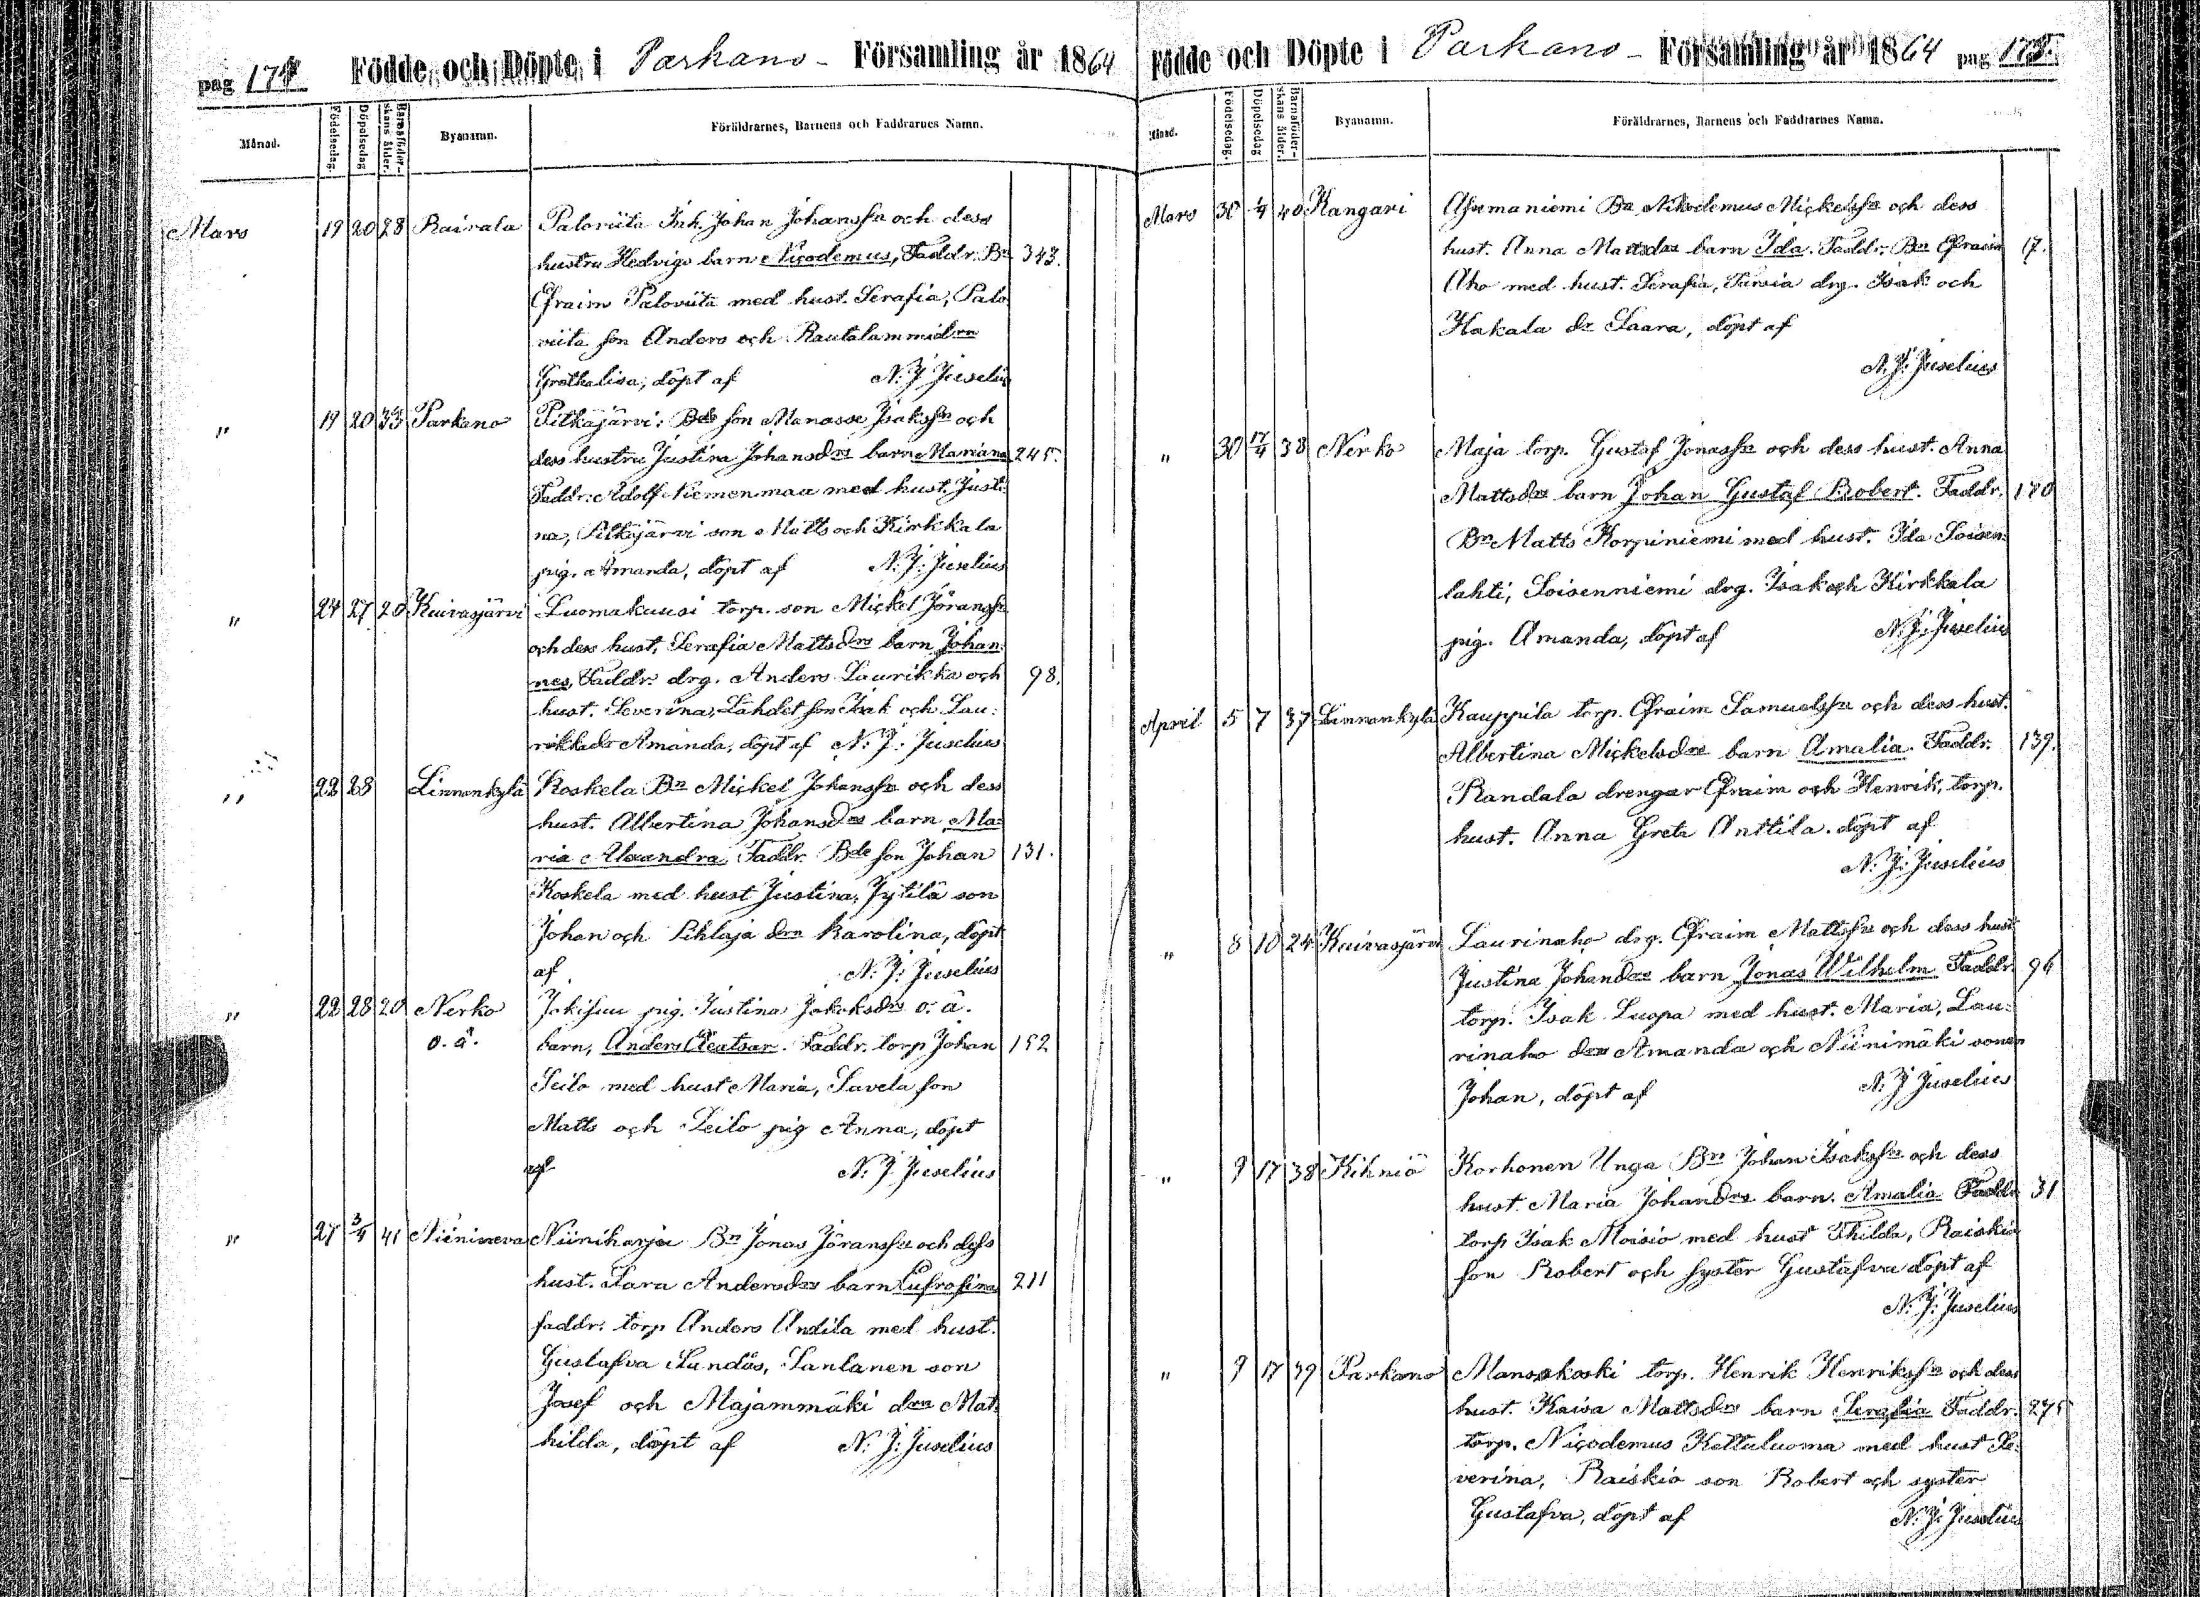 pag 174. Födde och Döpte i Parkano Församling år 1864
Månad. Födelsedag. Döpelsedag Barnaföderskans ålder. Byanamn. Föräldrarnes, Barnens och Faddrarnes Namn.
Mars 19 20 28 Rairala Paloviita Inh. Johan Johanss:n och dess
hustru Hedvigs barn Nicodemus, Faddr. Bn 343.
Efraim Paloviita med hust. Serafia, Palo
viita son Anders och Rautalammi drn
Grethalisa, döpt af N. J. Juselius
" 19 20 33 Parkano Pitkäjärvi Bde son Manasse Isakss:n och
dess hustru Justina Johansdrs barn Mariana 245.
Faddr. Adolf Niemenmaa med hust. Justi:
na, Pitkäjärvi son Matts och Kirkkala
pig. Amanda, döpt af N. J: Juselius
" 24 27 20 Kuivasjärvi Luomakuusi torp. son Mickel Jöranss:n
och dess hust. Serafia Mattsdrs barn Johan:
nes, Faddr. drg. Anders Laurikka och 98.
hust. Severina, Lähdet son Isak och Lau:
rikka dr Amanda, döpt af N. J: Juselius
" 22 28 Linnankylä Koskela Bn Mickel Johanss:n och dess
hust. Albertina Johansdrs barn Ma:
ria Alexandra, Faddr. Bde son Johan 131.
Koskela med hust Justina, Jytilä son
Johan och Pihlaja drn Karolina, döpt
af N. J: Juselius
" 22 28 20 Nerko Jokisuu pig. Justina Jakoksdrs o. ä.
o. ä. barn, Anders . Faddr. torp Johan 152
Seilo med hust Maria, Savela son
Matts och Seilo pig Anna, döpt
af N. J Juselius
" 27 3/4 41 Niinineva Niiniharja Bn Jonas Jöranss:n och dess
hust. Sara Andersdrs barn Eufrosina 211
faddr. torp Anders Andila med hust.
Gustafva Sundås, Santanen son
Josef och Majammäki drn Mat
hilda, döpt af N. J: Juselius
Födde och Döpte i Parkano Församling år 1864 pag 175.
Månad. Födelsedag. Döpelsedag Barnaföderskans ålder. Byanamn. Föräldrarnes, Barnens och Faddrarnes Namn.
Mars 30 40 Kangari Bn Nikodemus Mickelss:n och dess
hust. Anna Mattsdrs barn Ida. Faddr. Bn Efraim 17.
Aho med hust. Serafia, drg. Isak och
Hakala dr Saara, döpt af
N. J: Juselius
" 30 17/4 38 Nerko Maja torp. Gustaf Jonass:n och dess hust. Anna
Mattsdrs barn Johan Gustaf Robert. Faddr. 170
Bn Matts Korpiniemi med hust. Ida Soisen:
lahti, Soisenniemi drg. Isak och Kirkkala
pig. Amanda, döpt af N. J: Juselius
April 5 7 37 Linnankylä Kauppila torp. Efraim Samuelss:n och dess hust.
Albertina Mickelsdrs barn Amalia. Faddr. 139.
Randala drengar Efraim och Henrik, torp.
hust. Anna Greta Anttila. döpt af
N. J: Juselius
" 8 10 24 Kuivasjärvi Laurinaho drg. Efraim Mattss:n och dess hust
Justina Johandrs barn Jonas Wilhelm Faddr. 96
torp. Isak Luopa med hust. Maria, Lau:
rinaho drn Amanda och Niinimäki sonen
Johan, döpt af N. J Juselius
" 9 17 38 Kihniö Korhonen Unga Bn Johan Isakss:n och dess
hust Maria Johandrs barn. Amalia Faddr 31
torp Isak Moisio med hust Thilda, Raiskio
son Robert och syster Gustafva döpt af
N. J: Juselius
" 9 17 39 Parkano Mansakoski torp. Henrik Henrikss:n och dess
hust. Kaisa Mattsdrs barn Serafia Faddr. 275
torp. Nicodemus Kettuluoma med hust Se:
verina, Raiskio son Robert och syster
Gustafva, döpt af N. J: Juselius